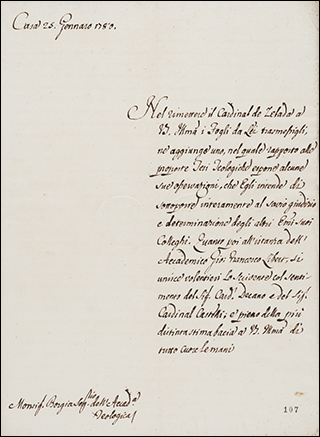 Casa 25. Gennaro 1780.
Nel rimettere il Cardinal de Zelada a
V. S. Illma i Fogli da Lei trasmessigli,
ne aggiunge uno, nel quale rapporto alle
proposte Tesi Teologiche espone alcune
sue osservazioni, che Egli intende di
sottoporre interamente al savio giudizio
e determinazione degli altri Emi suoi
Colleghi. Quanto poi all'istanza dell'
Accademico Gio: Francesco si
unisce volentieri lo Scrivente col senti-
mento del Sig. Card. Decano e del Sig.
Cardinal Castelli; e pieno della più
distinta stima bacia a V. S. Illma di
tutto cuore le mani
Monsig. Borgia Seg.rio dell'Accad.a
Teologica
107